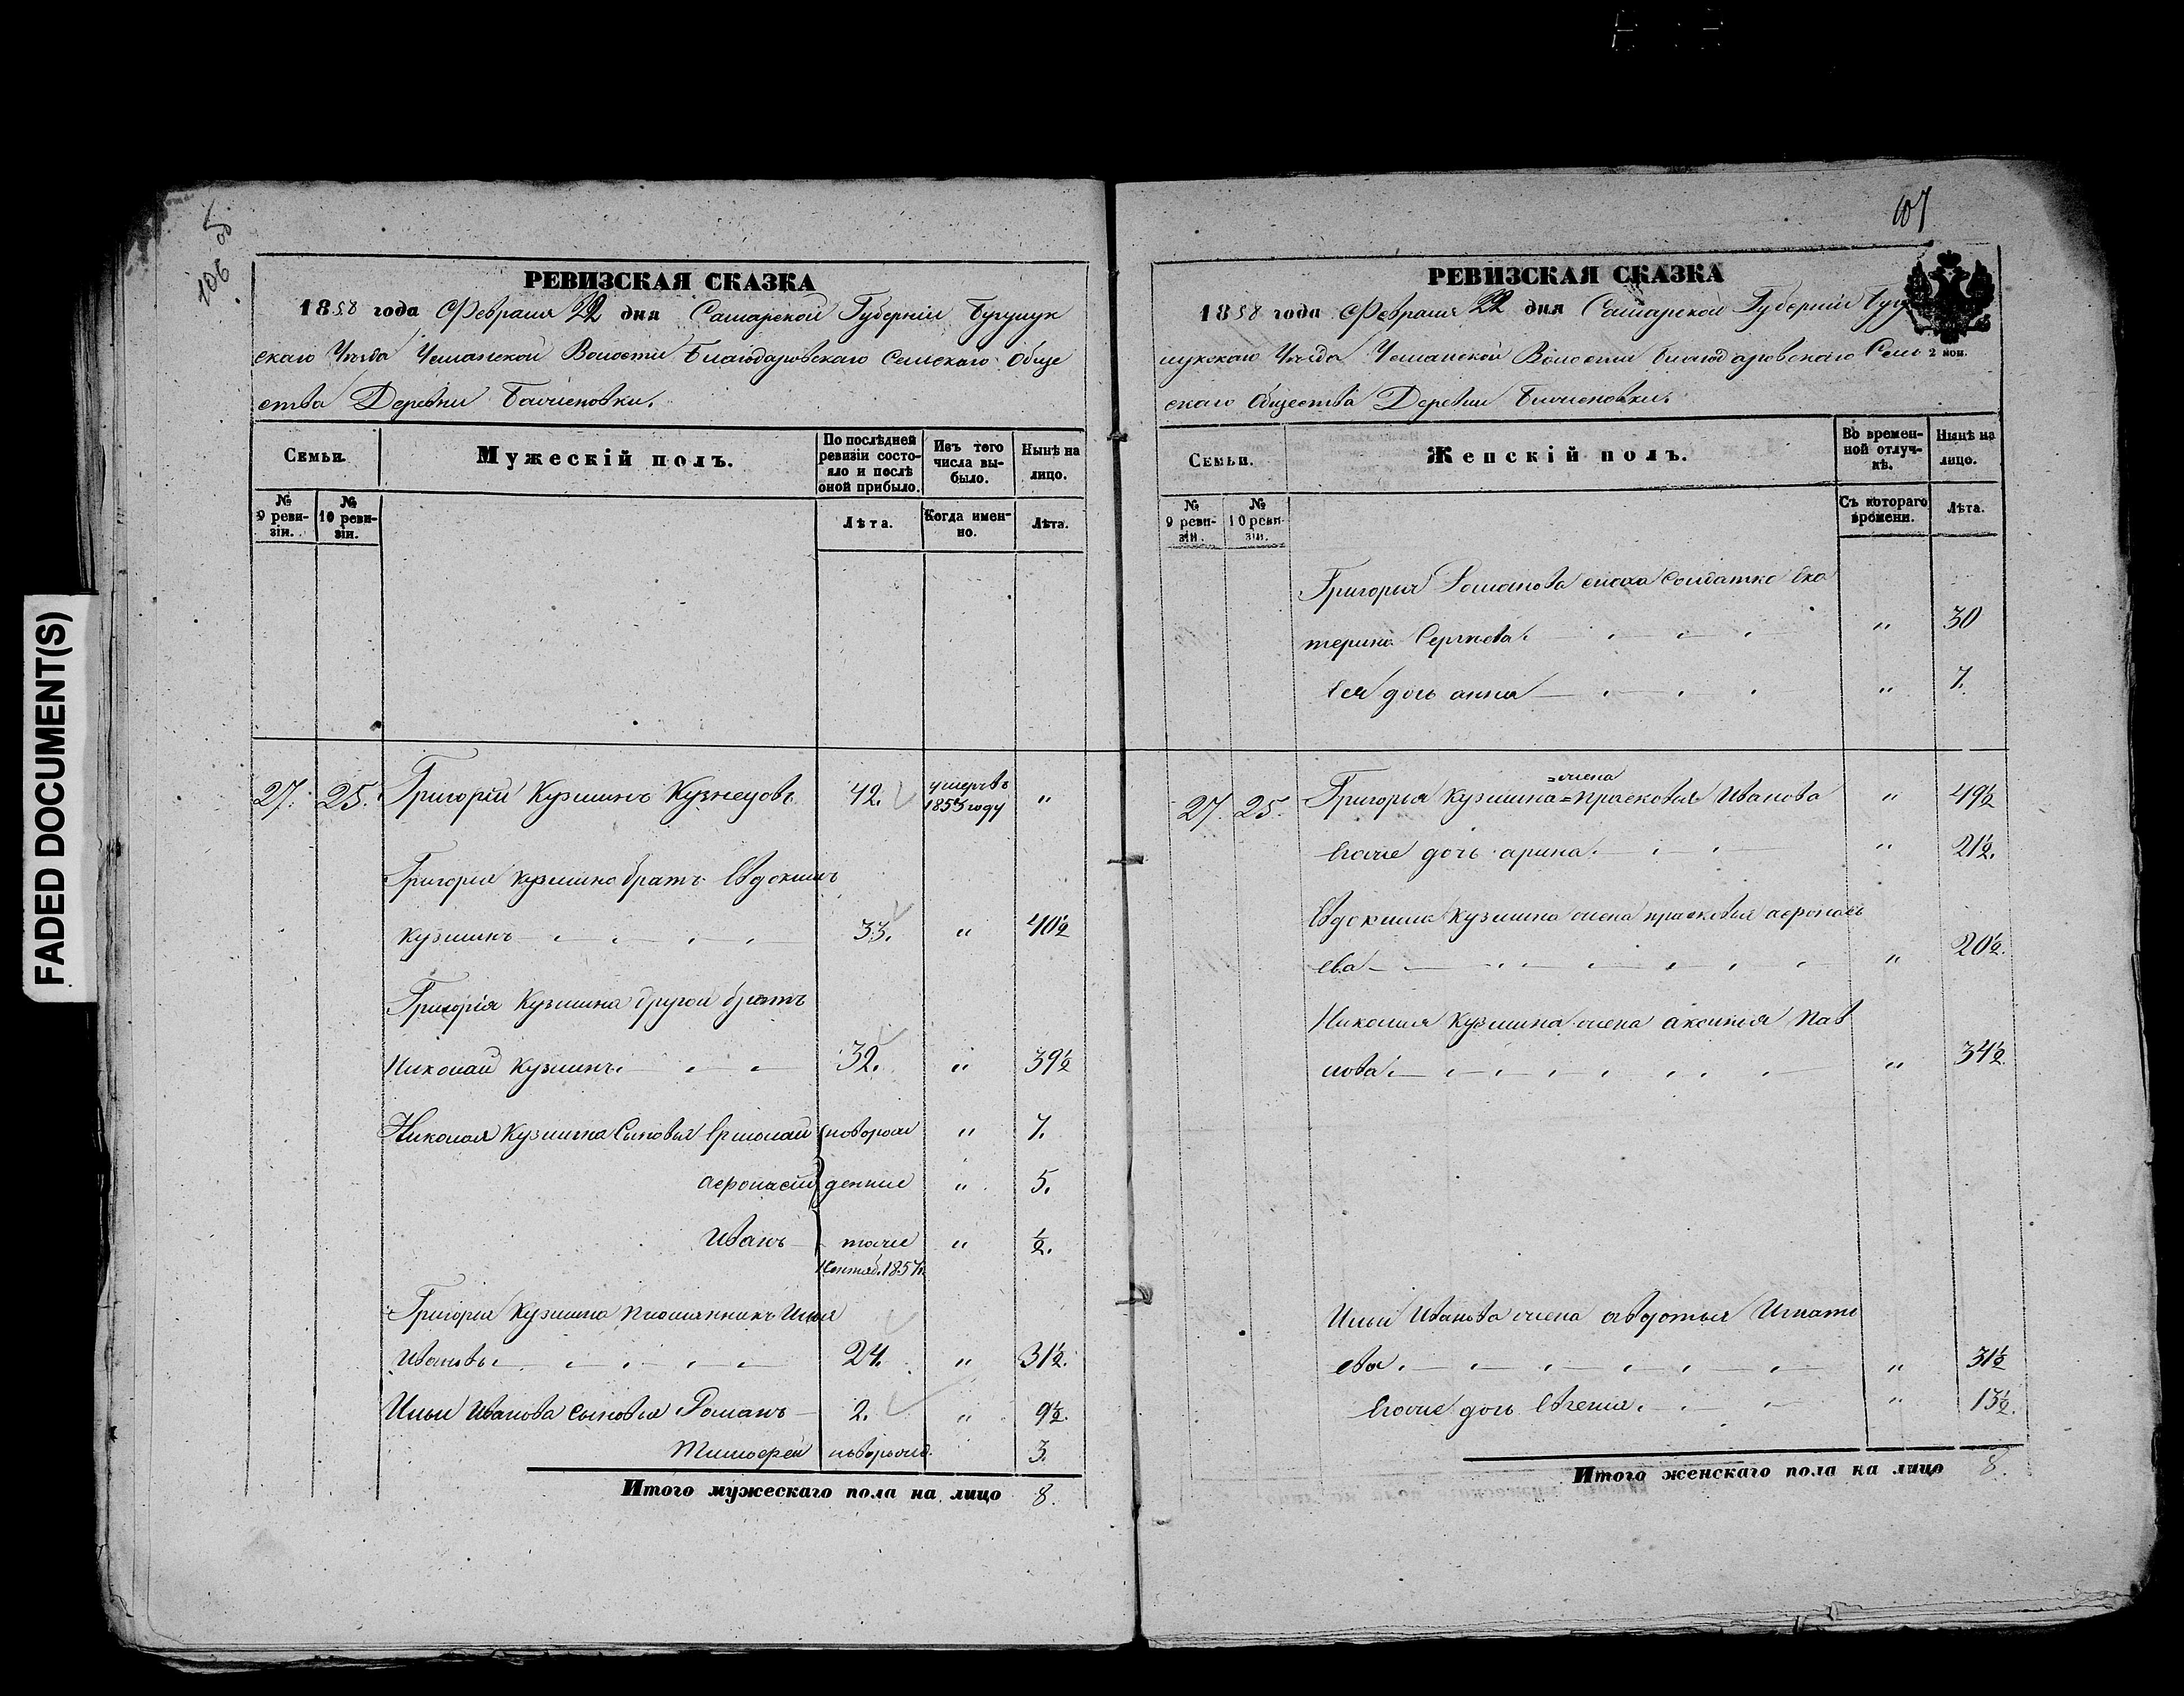 FADED DOCUMENT(S)
106
РЕВИЗСКАЯ СКАЗКА
1858 года Февраля 22 дня Самарской Губерніи Бугуруск
скаго Уѣзда Волости Благодаровскаго Сельскаго Обще
ства Деревни
Семьи.
Мужескій полъ.
По послѣдней ревизіи состояло и послѣ оной прибыло.
Изъ того числа выбыло.
Нынѣ на лицо.
№ 9 ревизіи.
№ 10 ревизіи.
Лѣта.
Когда именно.
Лѣта.
27. 25. Григорій Кузминъ Кузнецовъ 42. умеръ въ 1855 году "
Григорья Кузмина братъ Евдокимъ
Кузминъ 33. " 40½
Григорія Кузмина другой братъ
Николай Кузминъ 32. " 39½
Николая Кузмина Сыновья Ермолай новорож " 7.
Афонасій денные " 5.
Иванъ тоже " ½.
Сентяб. 1857 г.
Григорья Кузмина племянникъ Илья
Ивановъ 24. " 31½.
Ильи Иванова сыновья Романъ 2. " 9½.
Тимофей новорожд. 3.
Итого мужескаго пола на лицо 8.
107
РЕВИЗСКАЯ СКАЗКА
1858 года Февраля 22 дня Самарской Губерніи
Уѣзда Волости Благодаровскаго Сель
2 коп.
скаго Общества Деревни
Семьи.
Женскій полъ.
Во временной отлучкѣ.
Нынѣ на лицо.
№ 9 ревизіи.
№ 10 ревизіи.
Съ котораго времени.
Лѣта.
Григорья Романова сноха солдатка Ека
терина Сергѣева " 30
Ея дочь анна " 7.
=жена
27. 25. Григорья Кузмина=прасковья Иванова " 49½
Егоже дочь арина " 21½.
Евдокима Кузмина жена прасковья афонась
ева " 20½.
Николая Кузмина жена аксинья Пав
лова " 34½
Ильи Иванова жена авдотья Игнать
ева " 31½
Егоже дочь Евгенія " 13½.
Итого женскаго пола на лицо 8.